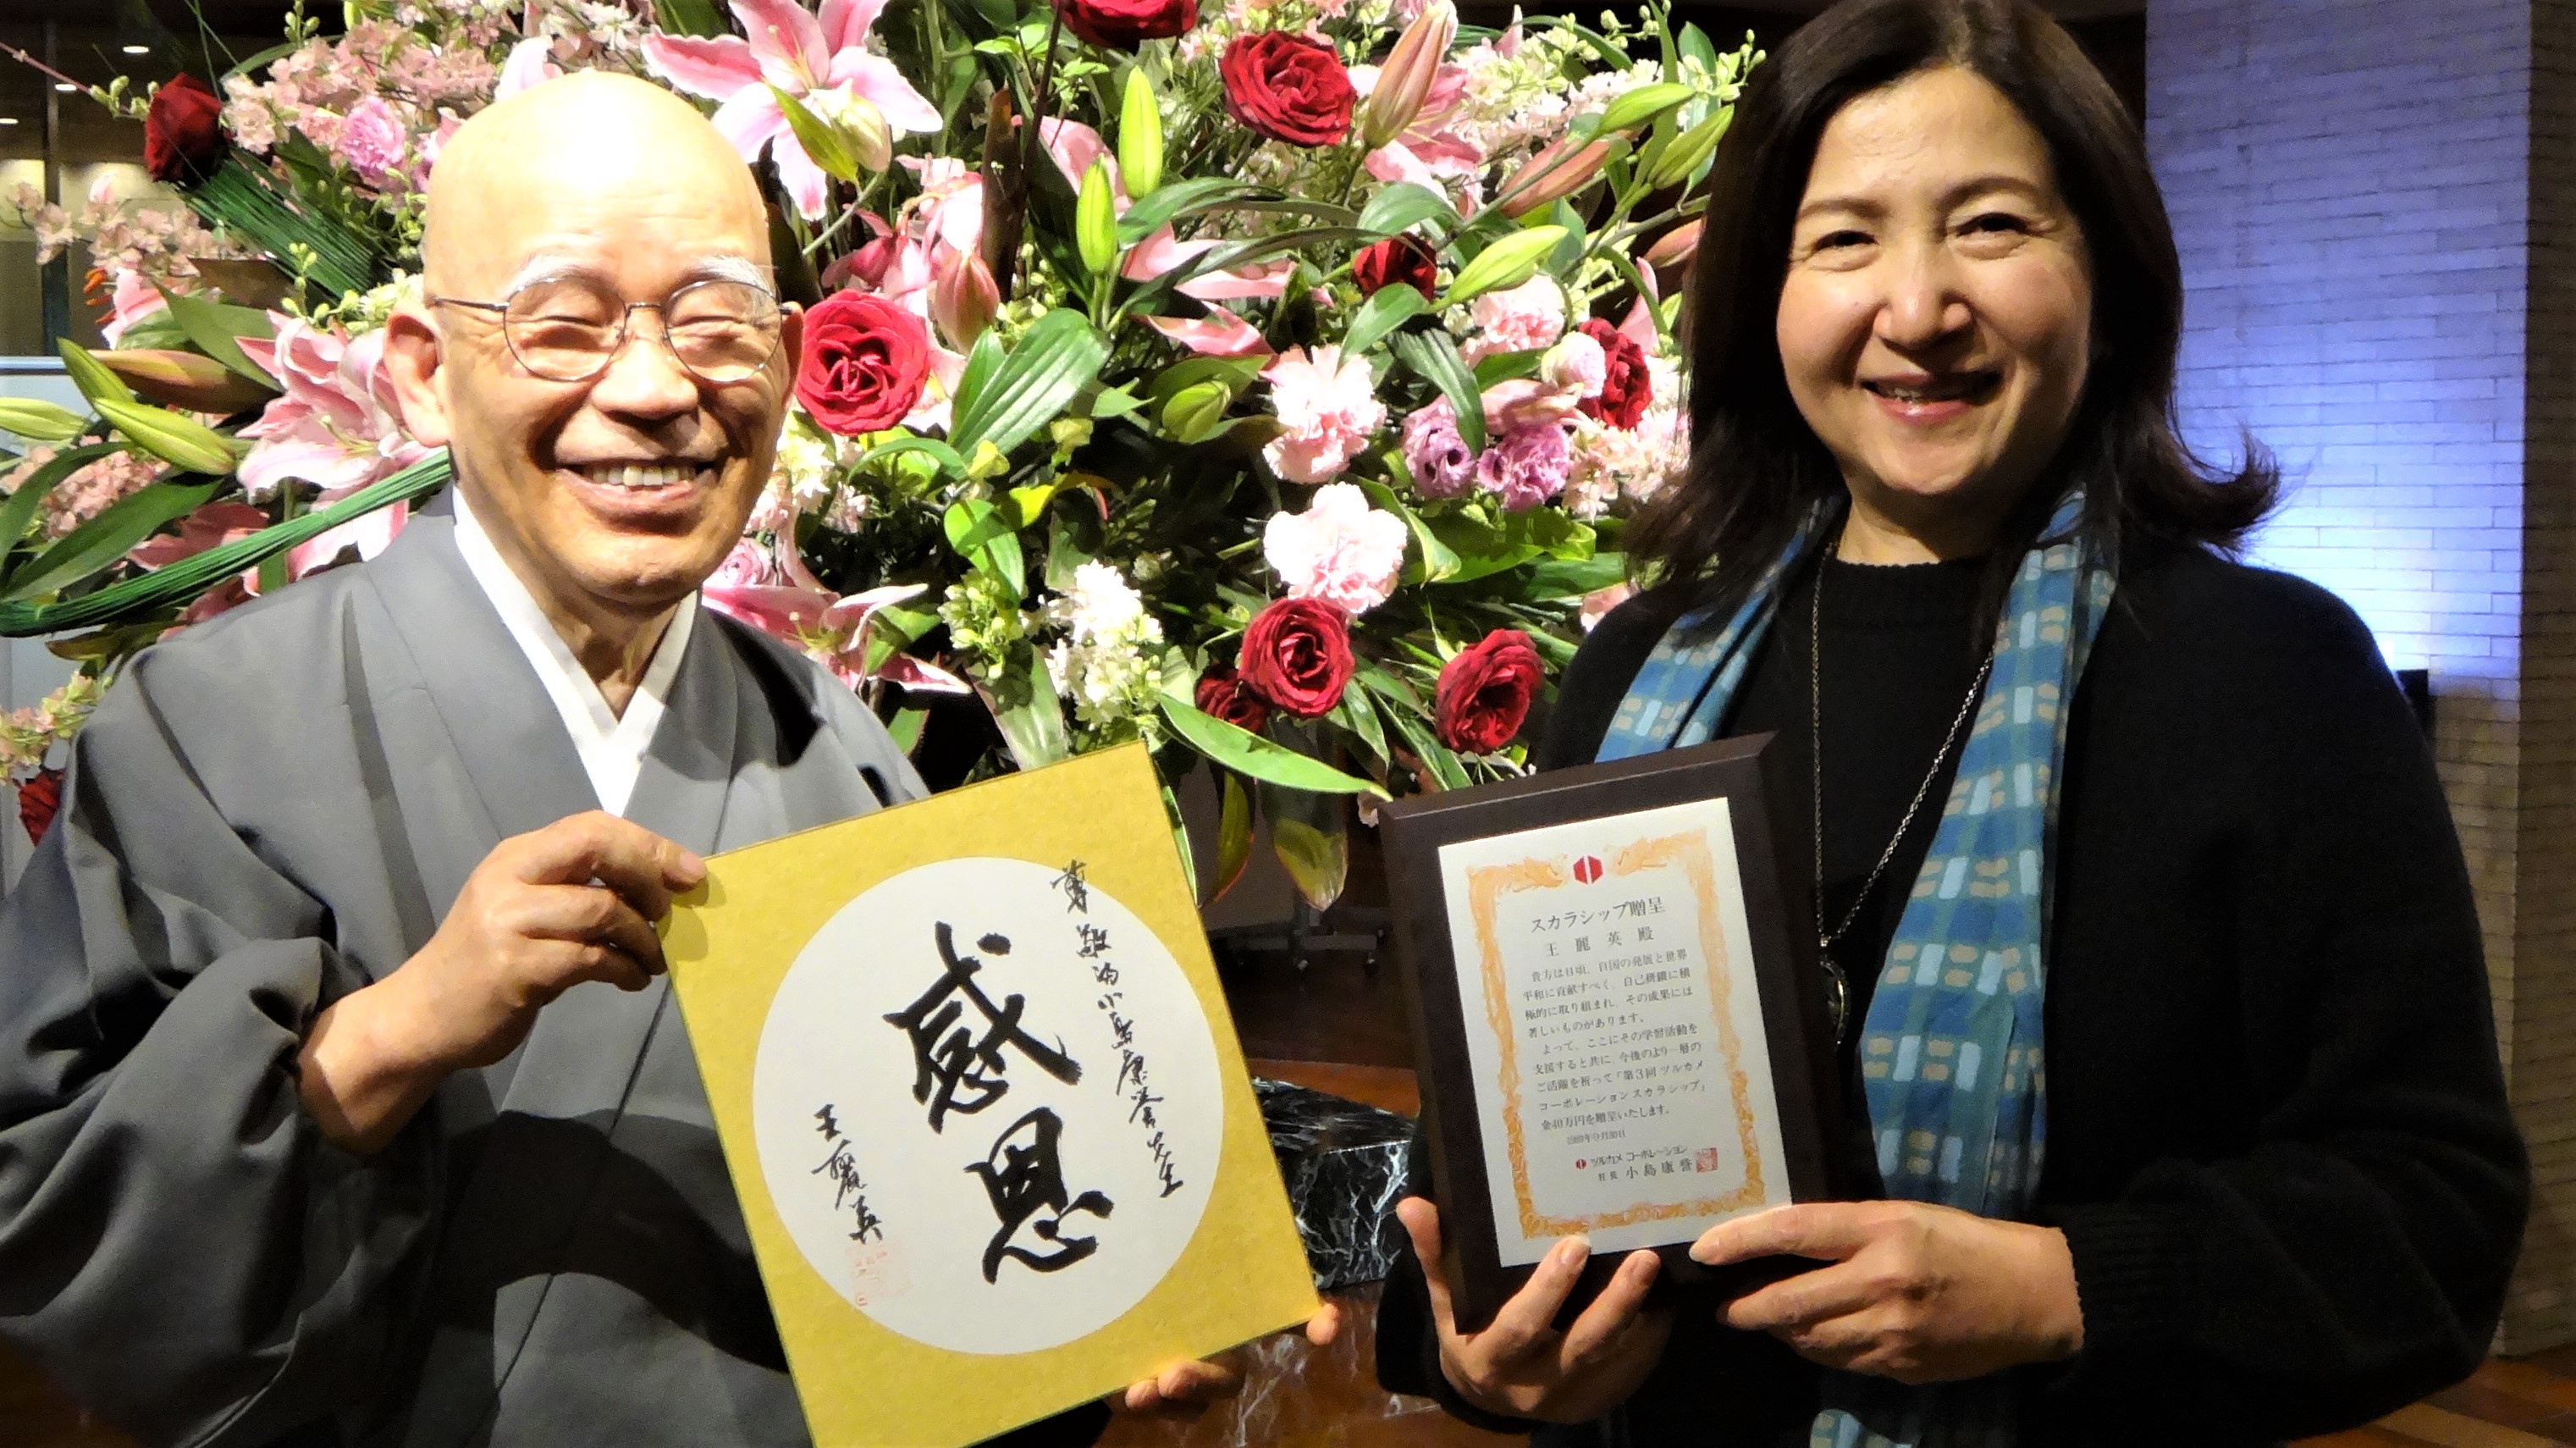 尊敬的小島康誉先生
感恩
王麗英
スカラシップ贈呈
王麗英殿
貴方は日頃、自国の発展と世界
平和に貢献すべく、自己研鑽に積
極的に取り組まれ、その成果には
著しいものがあります。
よって、ここにその学習活動を
支援すると共に、今後のより一層の
ご活躍を祈って「第3回ツルカメ
コーポレーションスカラシップ」
金40万円を贈呈いたします。
1989年9月30日
ツルカメ コーポレーション
社長 小島康誉